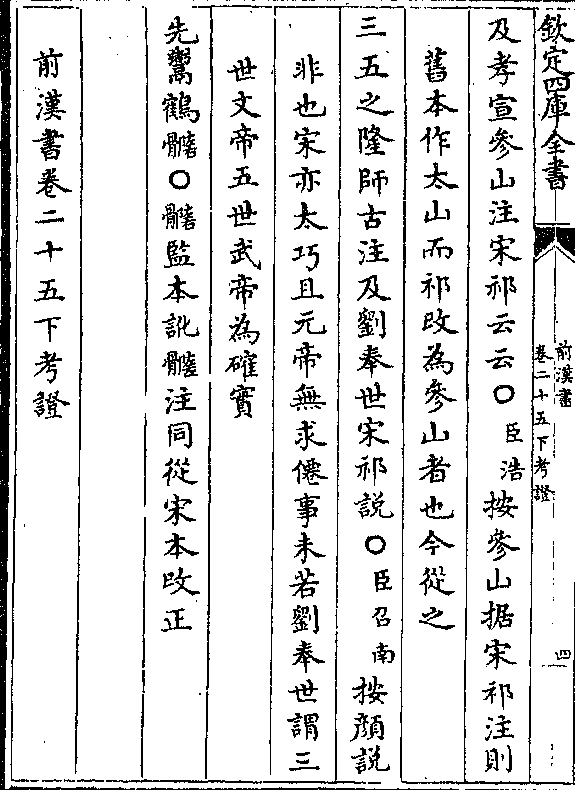 欽定四庫全書
前漢書
卷二十五下考證
四
及孝宣參山注宋祁云云〇臣浩按參山据宋祁注則
舊本作太山而祁改為參山者也今從之
三五之隆師古注及劉奉世宋祁說〇臣召南按顔說
非也宋亦太巧且元帝無求僊事未若劉奉世謂三
世文帝五世武帝為確實
先鬻鶴䯝〇䯝監本訛髓注同從宋本改正
前漢書卷二十五下考證